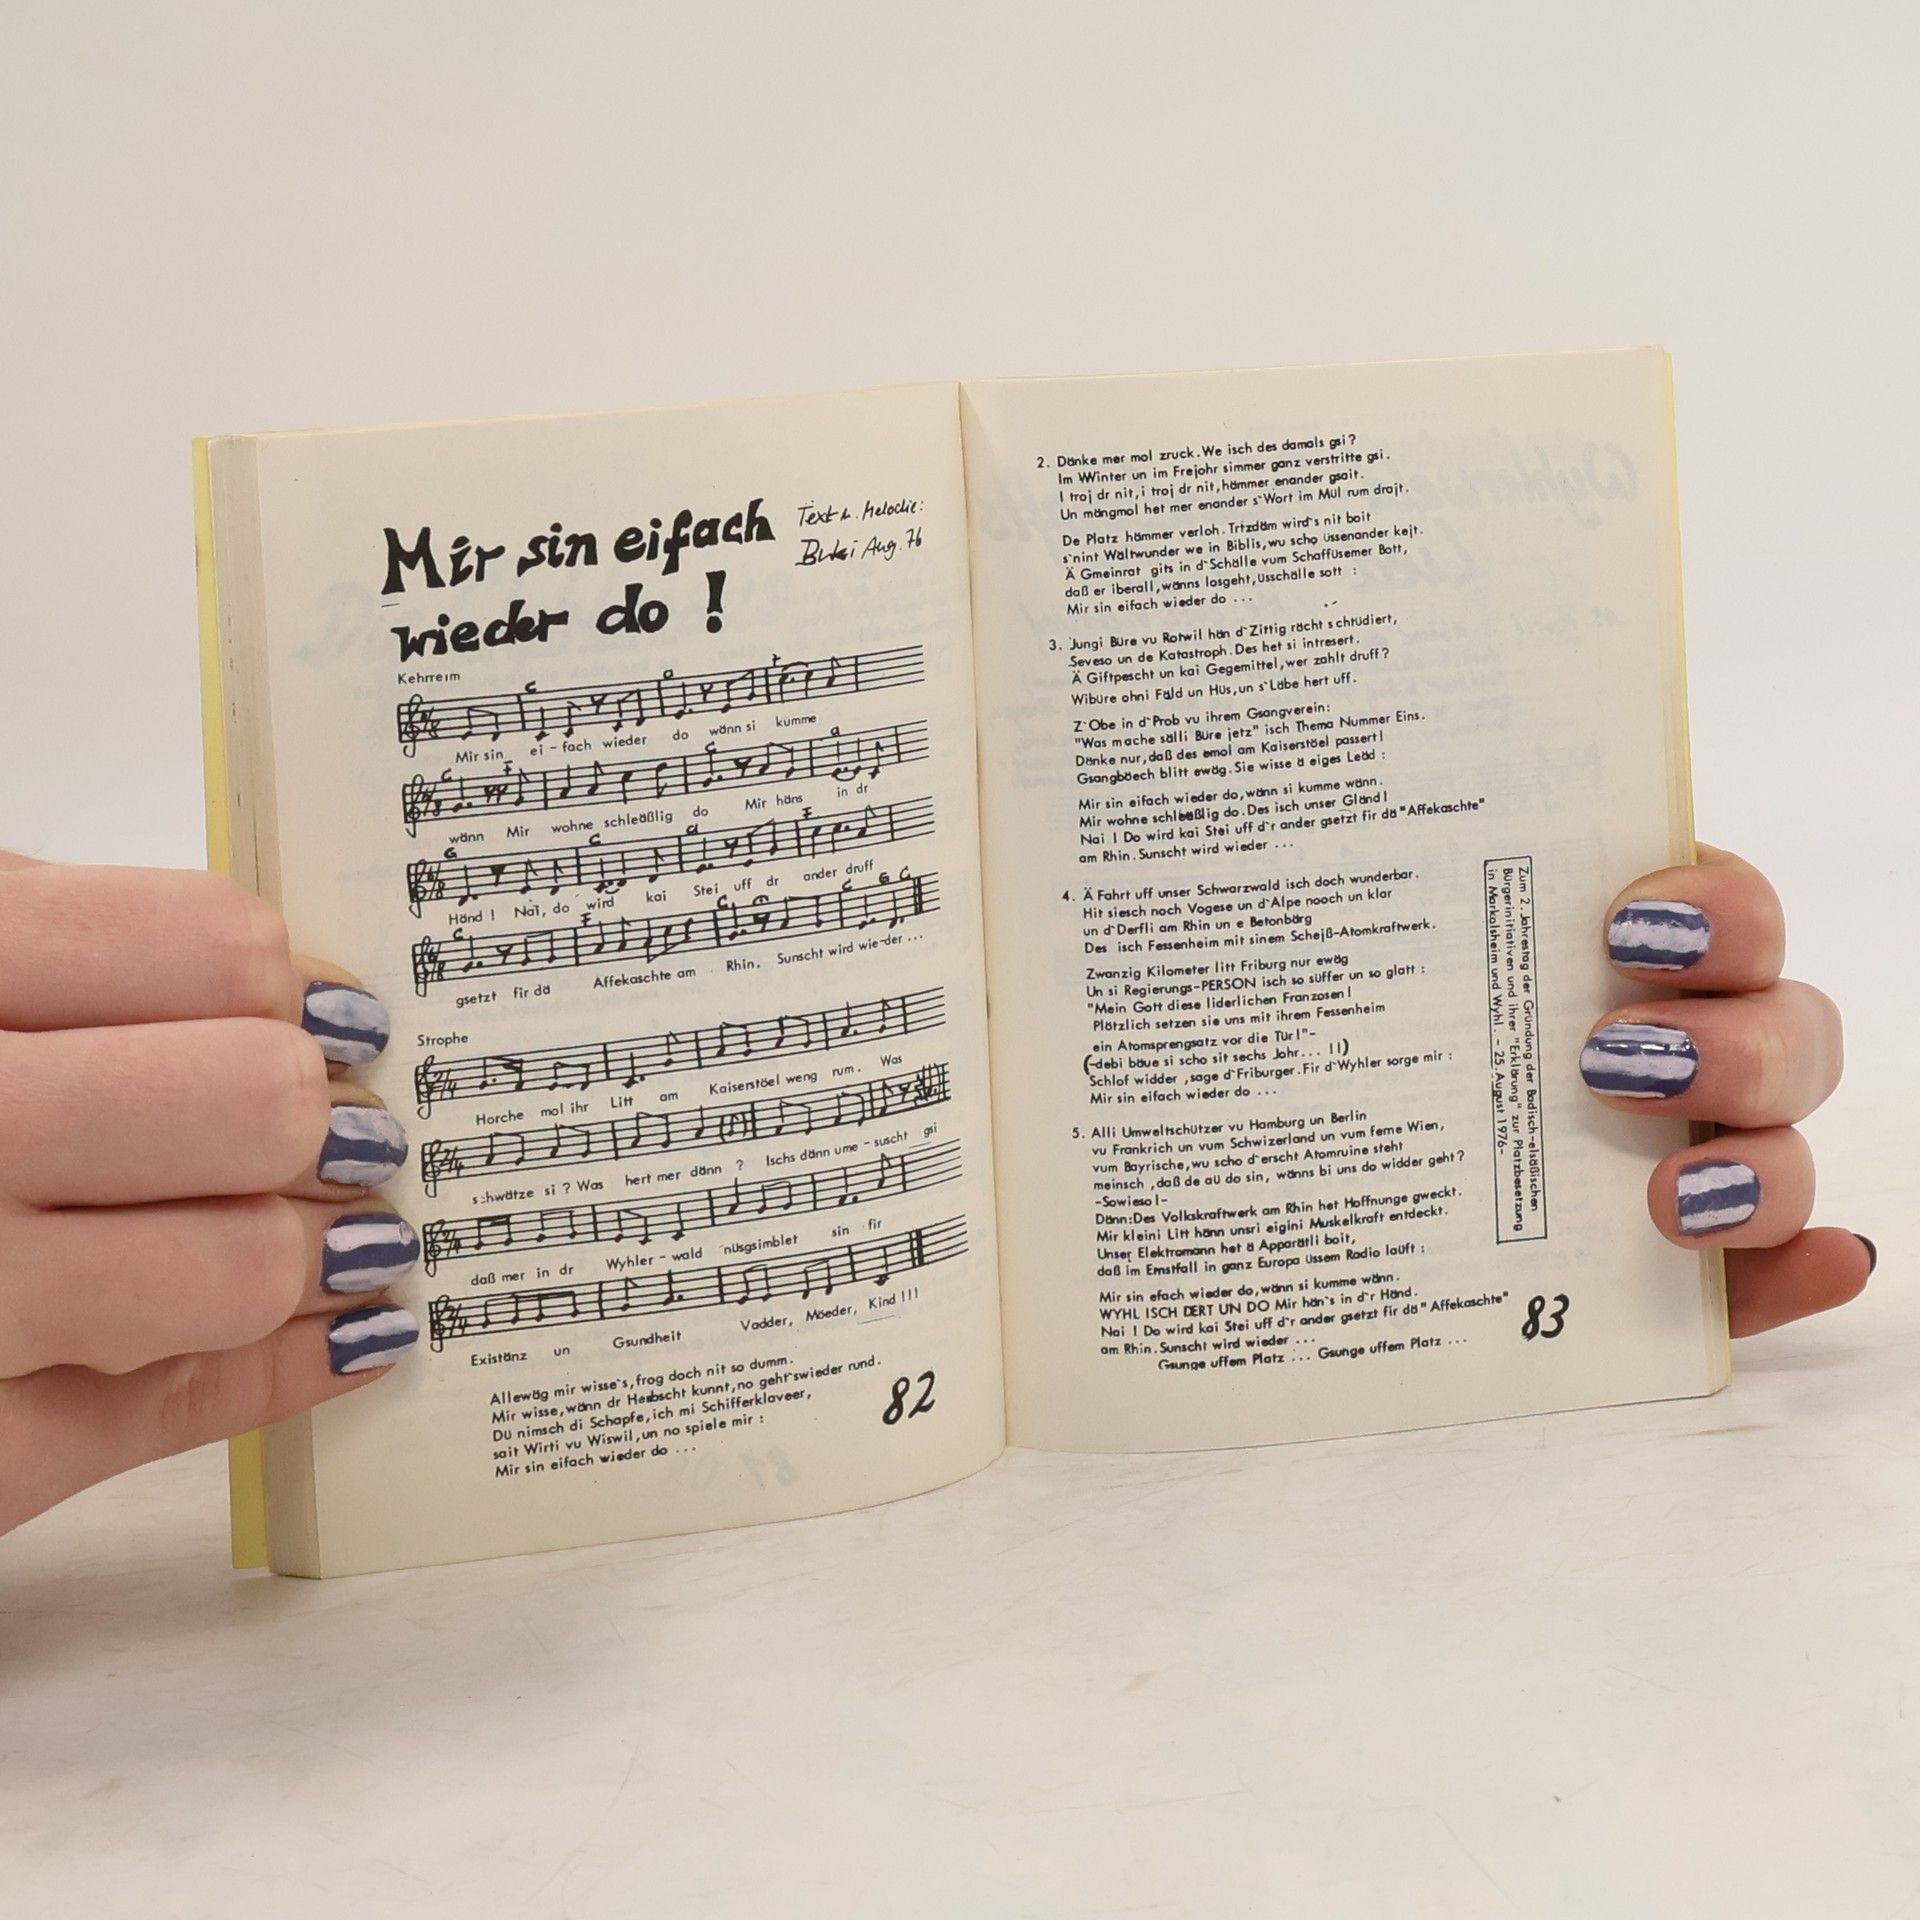 Mir sin eifach
wieder do !
Text u. Melodie:
Buki Aug. 76
Kehrreim
Mir sin ei-fach wieder do wänn si kumme
wänn Mir wohne schleäßlig do Mir häns in dr
Händ ! Nai, do wird kai Stei uff dr ander druff
gsetzt fir dä Affekaschte am Rhin. Sunscht wird wie-der ...
Strophe
Horche mol ihr Litt am Kaiserstöel weng rum. Was
schwätze si ? Was hert mer dänn ? Ischs dänn ume-suscht gsi
daß mer in dr Wyhler-wald nüsgsimblet sin fir
Existänz un Gsundheit Vadder, Möeder, Kind !!!
Allewäg mir wisse`s,frog doch nit so dumm.
Mir wisse,wänn dr Herbscht kunnt,no geht`swieder rund.
Dü nimsch di Schapfe,ich mi Schifferklaveer,
sait Wirti vu Wiswil,un no spiele mir :
Mir sin eifach wieder do ...
82
2. Dänke mer mol zruck.We isch des damals gsi?
Im Winter un im Frejohr simmer ganz verstritte gsi.
I troj dr nit,i troj dr nit,hämmer enander gsait.
Un mängmol het mer enander s`Wort im Mül rum drajt.
De Platz hämmer verloh.Trtzdäm wird`s nit boit
s`nint Wältwunder we in Biblis,wu scho üssenander kejt.
Ä Gmeinrat gits in d`Schälle vum Schaffüsemer Bott,
daß er iberall,wänns losgeht,üsschälle sott :
Mir sin eifach wieder do ...
3. Jungi Büre vu Rotwil hän d`Zittig rächt schtüdiert,
Seveso un de Katastroph.Des het si intresert.
Ä Giftpescht un kai Gegemittel,wer zahlt druff?
Wibüre ohni Fäld un Hüs,un s`Läbe hert uff.
Z`Obe in d`Prob vu ihrem Gsangverein:
"Was mache sälli Büre jetz" isch Thema Nummer Eins.
Dänke nur,daß des emol am Kaiserstöel passert!
Gsangböech blitt ewäg.Sie wisse ä eiges Leäd :
Mir sin eifach wieder do,wänn si kumme wänn.
Mir wohne schleäßlig do.Des isch unser Gländ!
Nai ! Do wird kai Stei uff d`r ander gsetzt fir dä"Affekaschte"
am Rhin.Sunscht wird wieder ...
4. Ä Fahrt uff unser Schwarzwald isch doch wunderbar.
Hit siesch noch Vogese un d`Alpe nooch un klar
un d`Derfli am Rhin un e Betonbärg
Des isch Fessenheim mit sinem Schejß-Atomkraftwerk.
Zwanzig Kilometer litt Friburg nur ewäg
Un si Regierungs-PERSON isch so süffer un so glatt :
"Mein Gott diese liderlichen Franzosen!
Plötzlich setzen sie uns mit ihrem Fessenheim
ein Atomsprengsatz vor die Tür!"-
(-debi bäue si scho sit sechs Johr... !!)
Schlof widder ,sage d`Friburger.Fir d`Wyhler sorge mir :
Mir sin eifach wieder do ...
5. Alli Umweltschützer vu Hamburg un Berlin
vu Frankrich un vum Schwizerland un vum ferne Wien,
vum Bayrische,wu scho d`erscht Atomruine steht
meinsch ,daß de aü do sin, wänns bi uns do widder geht?
-Sowieso!-
Dänn:Des Volkskraftwerk am Rhin het Hoffnunge gweckt.
Mir kleini Litt hänn unsri eigini Muskelkraft entdeckt.
Unser Elektromann het ä Apparätli boit,
daß im Ernstfall in ganz Europa üssem Radio laüft :
Mir sin efach wieder do,wänn si kumme wänn.
WYHL ISCH DERT UN DO Mir hän`s in d`r Händ.
Nai ! Do wird kai Stei uff d`r ander gsetzt fir dä"Affekaschte"
am Rhin.Sunscht wird wieder ...
Gsunge uffem Platz ... Gsunge uffem Platz ...
Zum 2.Jahrestag der Gründung der Badisch-elsäßischen
Bürgerinitiativen und ihrer "Erklärung" zur Platzbesetzung
in Markolsheim und Wyhl. - 25.August 1976-
83